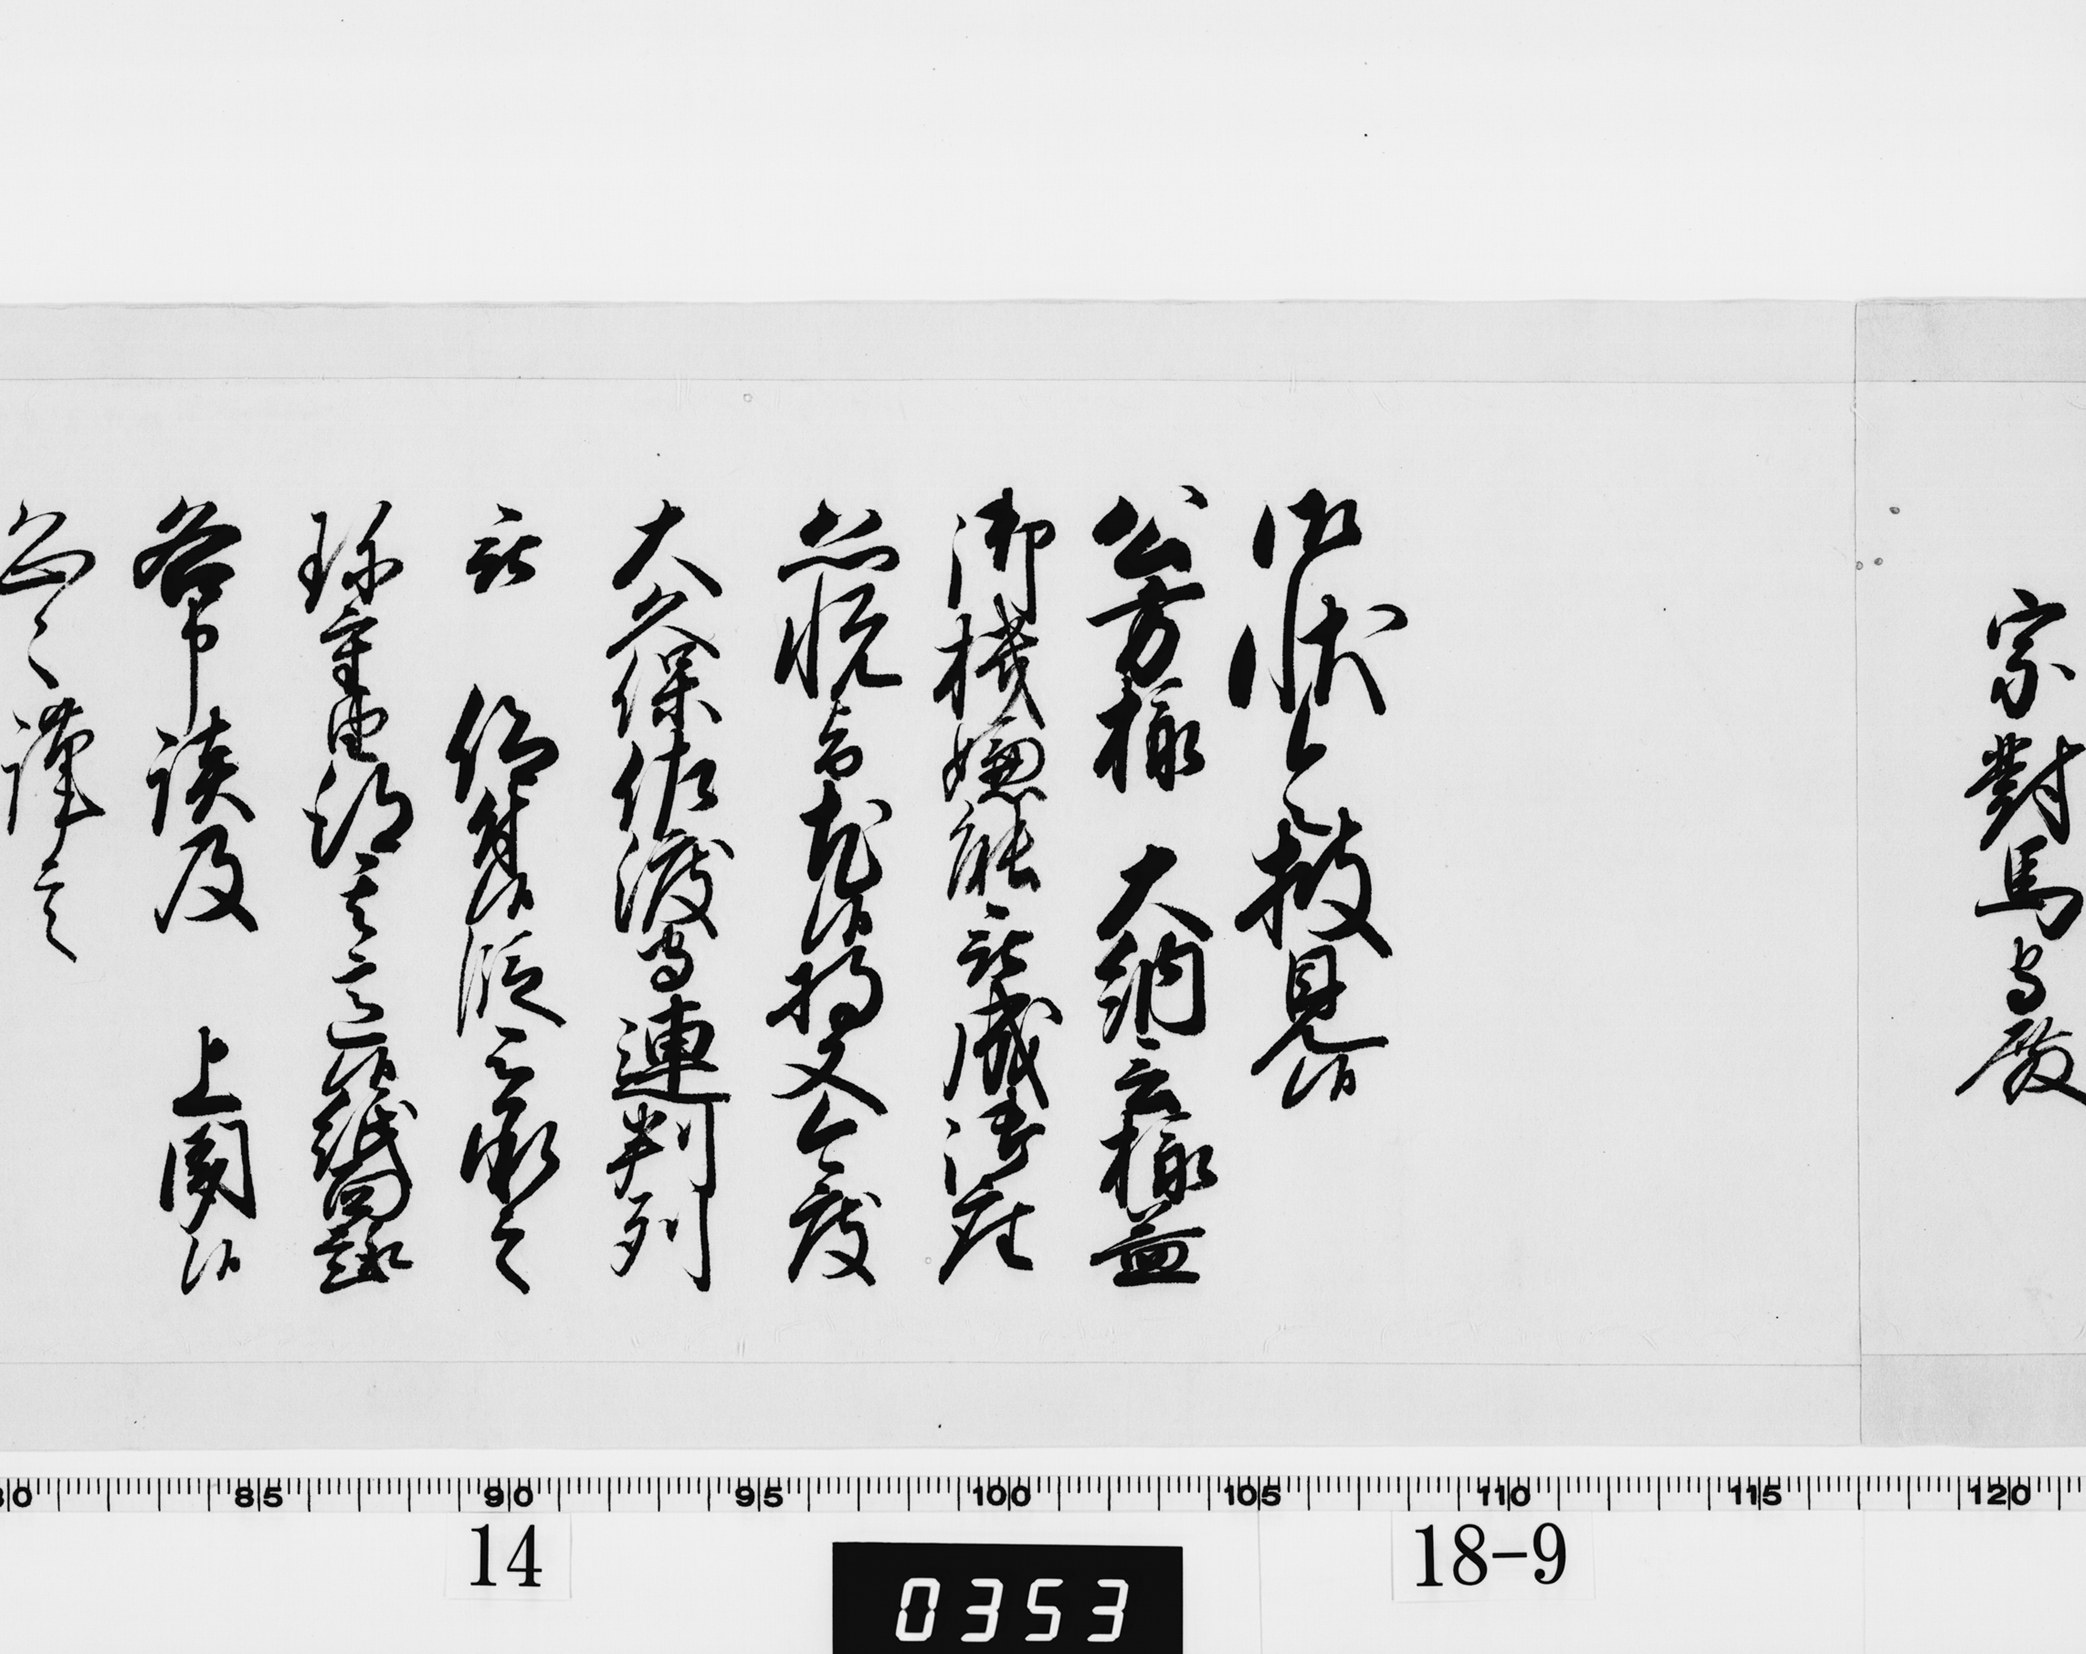 宗對馬守殿
御状令披見候
公方様 大納言様益
御機嫌能被成御座
恐悦旨尤候将又今度
大久保佐渡守連判列
被 仰付候段被承之
珍重由得其意候紙面趣
各申談及 上聞候
恐々謹言
80 85 90 95 100 105 110 115 120
14
18-9
0353